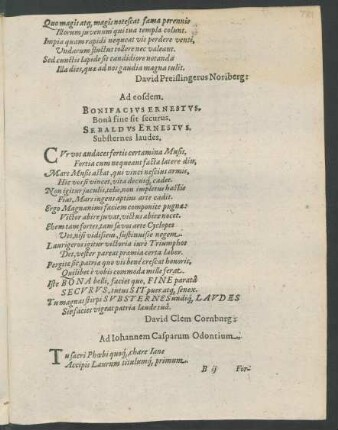 Quo magis atq, magis notescat fama perennis
Istorum juvenum qui tua templa colunt.
Impia quam rapidi nequeat vis perdere venti,
Undarum fluctus tollere nec valeant.
Sed cunctis lapide sit candidiore notanda
Illa dies, quæ ad nos gaudia magna tulit.
David Preislingerus Noriberg:
Ad eosdem,
BONIFACIVS ERNESTVS,
Bonâ fine sit securus,
SEBALDVS ERNESTVS,
Substernes laudes,
CVr vos audaces fortis certamina Musis,
Fortia cum nequeant facta latere diu,
Mars Musis altat, qui vinci nescius armis,
Hic vos si vincet, vita
Non igitur jaculis, telis, non impetus hastis
Fiat, Mars ingens aptius arte cadit.
Ergo Magnanimi faciem componite pugnæ:
Victor abire juvat, victus abire nocet.
Ehem tam fortes, tam sævo arte Cyclopes
Vos, nisi vidissem, sustinuisse negem.
Lantigeros igitur victoria iure Triumphos
Det, vester pareat præmia certa labor.
Pergite sic patria quo vis bene crescat honoris,
Quilibet è vobis commoda mille ferat.
Iste BONA belli, faciet quo, FINE paratâ
SECVRVS, intus SIT puer atq, senex.
Tu magnæ stirpi SVBSTERNES undiq, LAVDES
Sic faciet vigeat patria laude tud.
David Clem Cornburg:
Ad Iohannem Casparum Odontium.
TU sacri Phœbi quoq, chare Iane
Accipis Laurum titulumq, primum
B ij For-